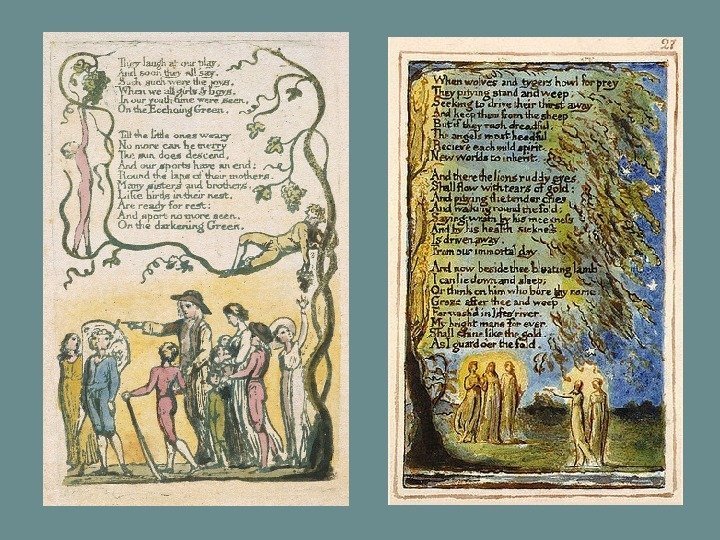 They laugh at our play,
And soon they all say,
Such such were the joys,
When we all girls & boys,
In our youth-time were seen,
On the Ecchoing Green.
Till the little ones weary
No more can be merry
The sun does descend,
And our sports have an end:
Round the laps of their mothers,
Many sisters and brothers,
Like birds in their nest,
Are ready for rest:
And sport no more seen,
On the darkening Green.
27
When wolves and tygers howl for prey
They pitying stand and weep;
Seeking to drive their thirst away
And keep them from the sheep.
But if they rush dreadful;
The angels most heedful
Recieve each mild spirit
New worlds to inherit.
And there the lions ruddy eyes
Shall flow with tears of gold:
And pitying the tender cries
And walking round the fold:
Saying: wrath by his meekness
And by his health, sickness
Is driven away.
From our immortal day.
And now beside thee bleating lamb
I can lie down and sleep;
Or think on him who bore thy name
Graze after thee and weep.
For wash'd in lifes river.
My bright mane for ever.
Shall shine like the gold.
As I guard o'er the fold.